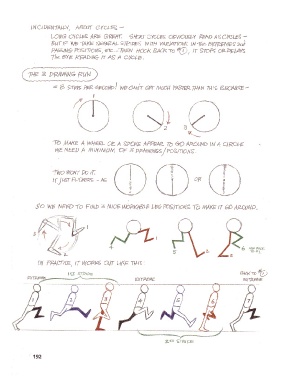 INCIDENTALLY, ABOUT CYCLES —
LONG CYCLES ARE GREAT. SHORT CYCLES OBVIOUSLY READ AS CYCLES —
BUT IF WE TAKE SEVERAL STRIDES WITH VARIATIONS IN THE EXTREMES AND
PASSING POSITIONS, ETC. THEN HOOK BACK TO #1, IT STOPS OR DELAYS
THE EYE READING IT AS A CIRCLE.
THE 3 DRAWING RUN
= 8 STEPS PER SECOND! WE CAN'T GET MUCH FASTER THAN THIS BECAUSE —
1
2
3
TO MAKE A WHEEL OR A SPOKE APPEAR TO GO AROUND IN A CIRCLE
WE NEED A MINIMUM OF 3 DRAWINGS/POSITIONS.
TWO WON'T DO IT.
IT JUST FLICKERS - AS
OR
SO WE NEED TO FIND 3 NICE WORKABLE LEG POSITIONS TO MAKE IT GO AROUND.
1
2
3
IN PRACTICE, IT WORKS OUT LIKE THIS
EXTREME
1ST STRIDE
EXTREME
BACK TO #1
EXTREME
1
2
3
4
5
6
1
2ND STRIDE
192